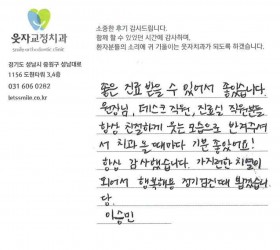 웃자교정치과
smile orthodontic clinic
경기도 성남시 중원구 성남대로
1156 도원타워 3,4층
031 606 0282
letssmile.co.kr
소중한 후기 감사드립니다.
함께 할 수 있었던 시간에 감사하며,
환자분들의 소리에 귀 기울이는 웃자치과가 되도록 하겠습니다.
좋은 진료 받을 수 있어서 좋았습니다.
원장님, 데스크 직원, 진료실 직원분들
항상 친절하게 웃는 모습으로 반겨주셔
서 치과 올 때마다 기분 좋았어요!
항상 감사했습니다. 가지런한 치열이
되어서 행복해용 정기검진때 뵙겠습니
당.
이승민